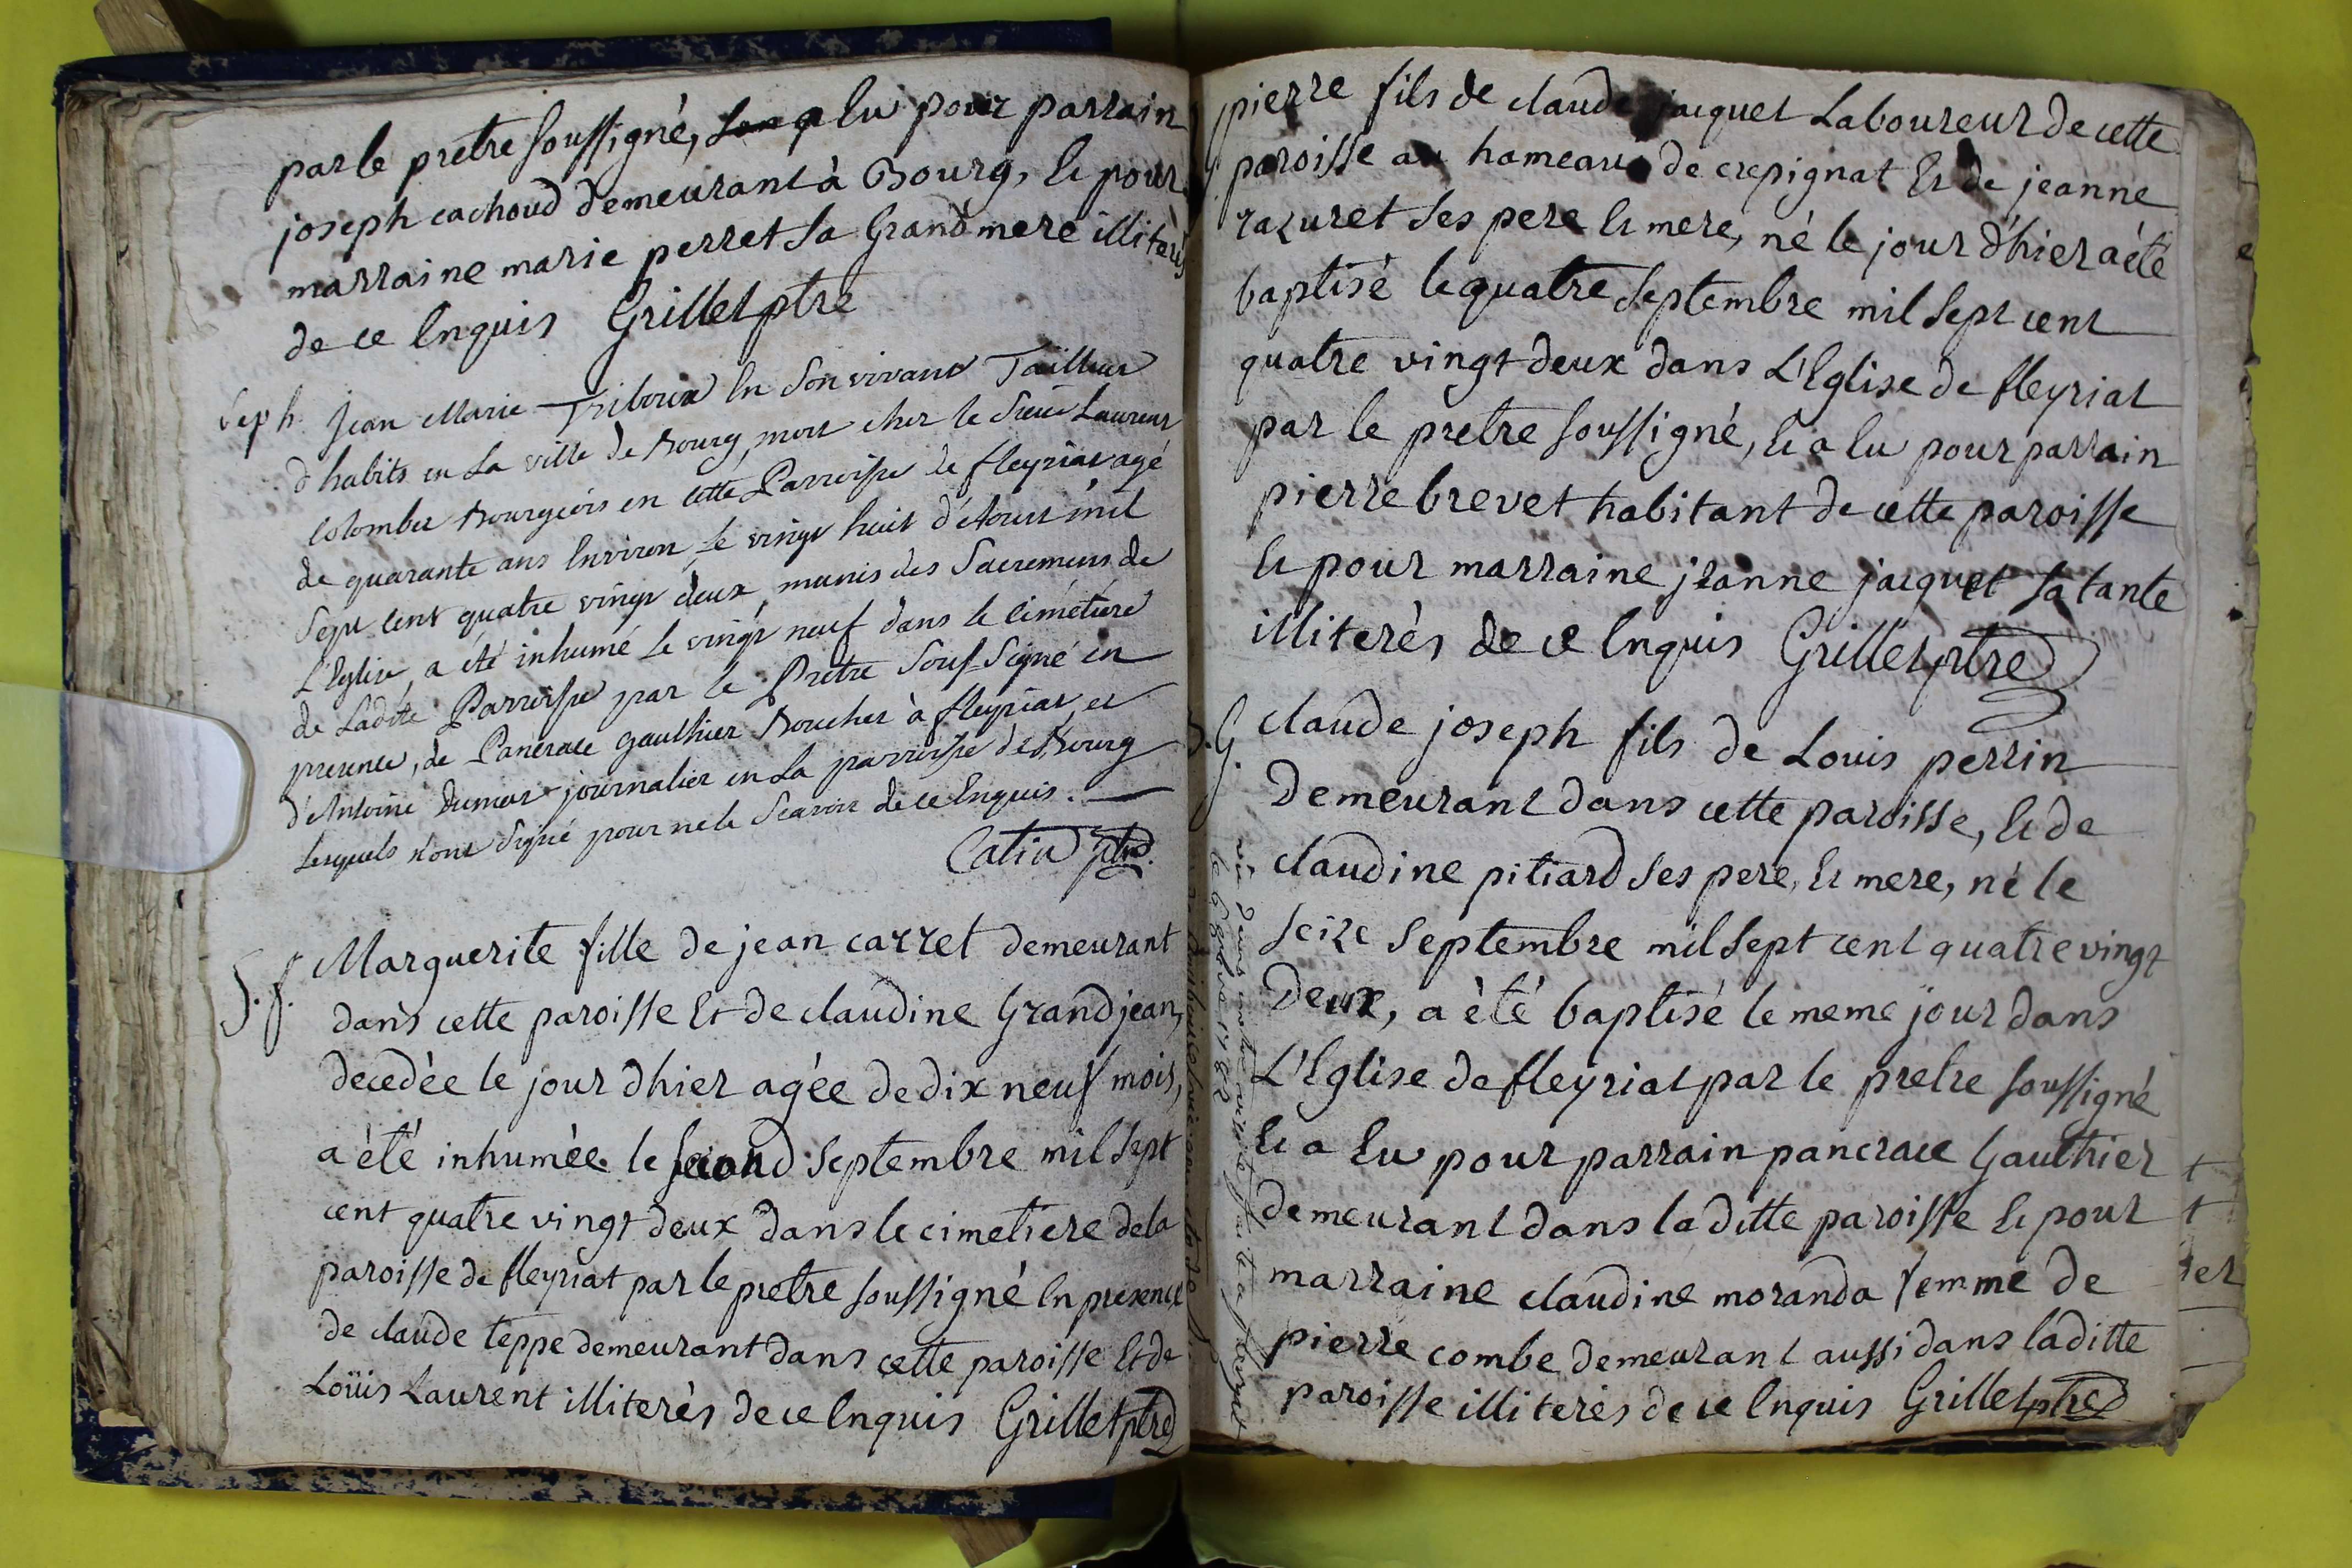 par le pretre soussigné, a lu pour parrain
joseph cachoud demeurant à Bourg, Et pour
marraine marie perret sa Grand mere illiterés
de ce Enquis Grillet ptre
Seph. Jean Marie Triboux En Son vivant Tailleur
d'habits en La ville de Bourg, mort chez le Sieur Laurent
Colombet Bourgeois en cette Parroisse de fleyriat agé
de quarante ans Environ, Le vingt huit d'Aoust mil
Sept Cent quatre vingt deux, munis des Sacremens de
L'Eglise, a été inhumé Le vingt neuf dans le Cimetiere
de Ladite Parroisse par le Pretre Sous-Signé en
presence, de Pancrace gauthier Boucher à fleyriat et
d'Antoine Dumas journalier en La parroisse de Bourg
Lesquels n'ont Signé pour ne le Scavoir de ce Enquis.
Catin ptre.
S.f. Marguerite fille de jean carret demeurant
dans cette paroisse Et de claudine Grandjean,
decedée le jour d'hier agée de dix neuf mois,
a èté inhumée le second Septembre mil Sept
cent quatre vingt deux dans le cimetiere de la
paroisse de fleyriat par le pretre soussigné En presence
de claude teppe demeurant dans cette paroisse Et de
Loüis Laurent illiterés de ce Enquis Grillet ptre
pierre fils de claude jacquet Laboureur de cette
paroisse au hameau de crepignat Et de jeanne
razuret Ses pere Et mere, né le jour d'hier a èté
baptisé le quatre Septembre mil Sept cent
quatre vingt deux dans L'Eglise de fleyriat
par le pretre soussigné, Et a Eu pour parrain
pierre brevet habitant de cette paroisse
Et pour marraine jeanne jacquet Sa tante
illiterés de ce Enquis Grillet ptre
G. claude joseph fils de Louis perrin
Demeurant dans cette paroisse, Et de
claudine pitiard Ses pere, Et mere, né le
Seize Septembre mil Sept cent quatre vingt
Deux, a èté baptisé le meme jour dans
L'Eglise de fleyriat par le pretre soussigné
Et a Eu pour parrain pancrace Gauthier
demeurant dans la ditte paroisse Et pour
marraine claudine moranda femme de
pierre combe demeurant aussi dans laditte
paroisse illiterés de ce Enquis Grillet ptre